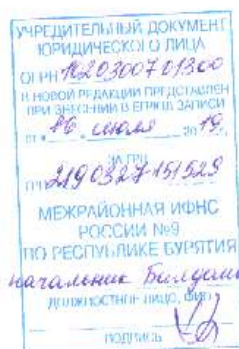 УЧРЕДИТЕЛЬНЫЙ ДОКУМЕНТ
ЮРИДИЧЕСКОГО ЛИЦА
ОГРН 1020300701300
В НОВОЙ РЕДАКЦИИ ПРЕДСТАВЛЕН
ПРИ ВНЕСЕНИИ В ЕГРЮЛ ЗАПИСИ
ОТ « 16 июля 2019
ЗА ГРН
ГРН 2190327151529
МЕЖРАЙОННАЯ ИФНС
РОССИИ №9
ПО РЕСПУБЛИКЕ БУРЯТИЯ
начальник
ДОЛЖНОСТНОЕ ЛИЦО, ФИО
ПОДПИСЬ